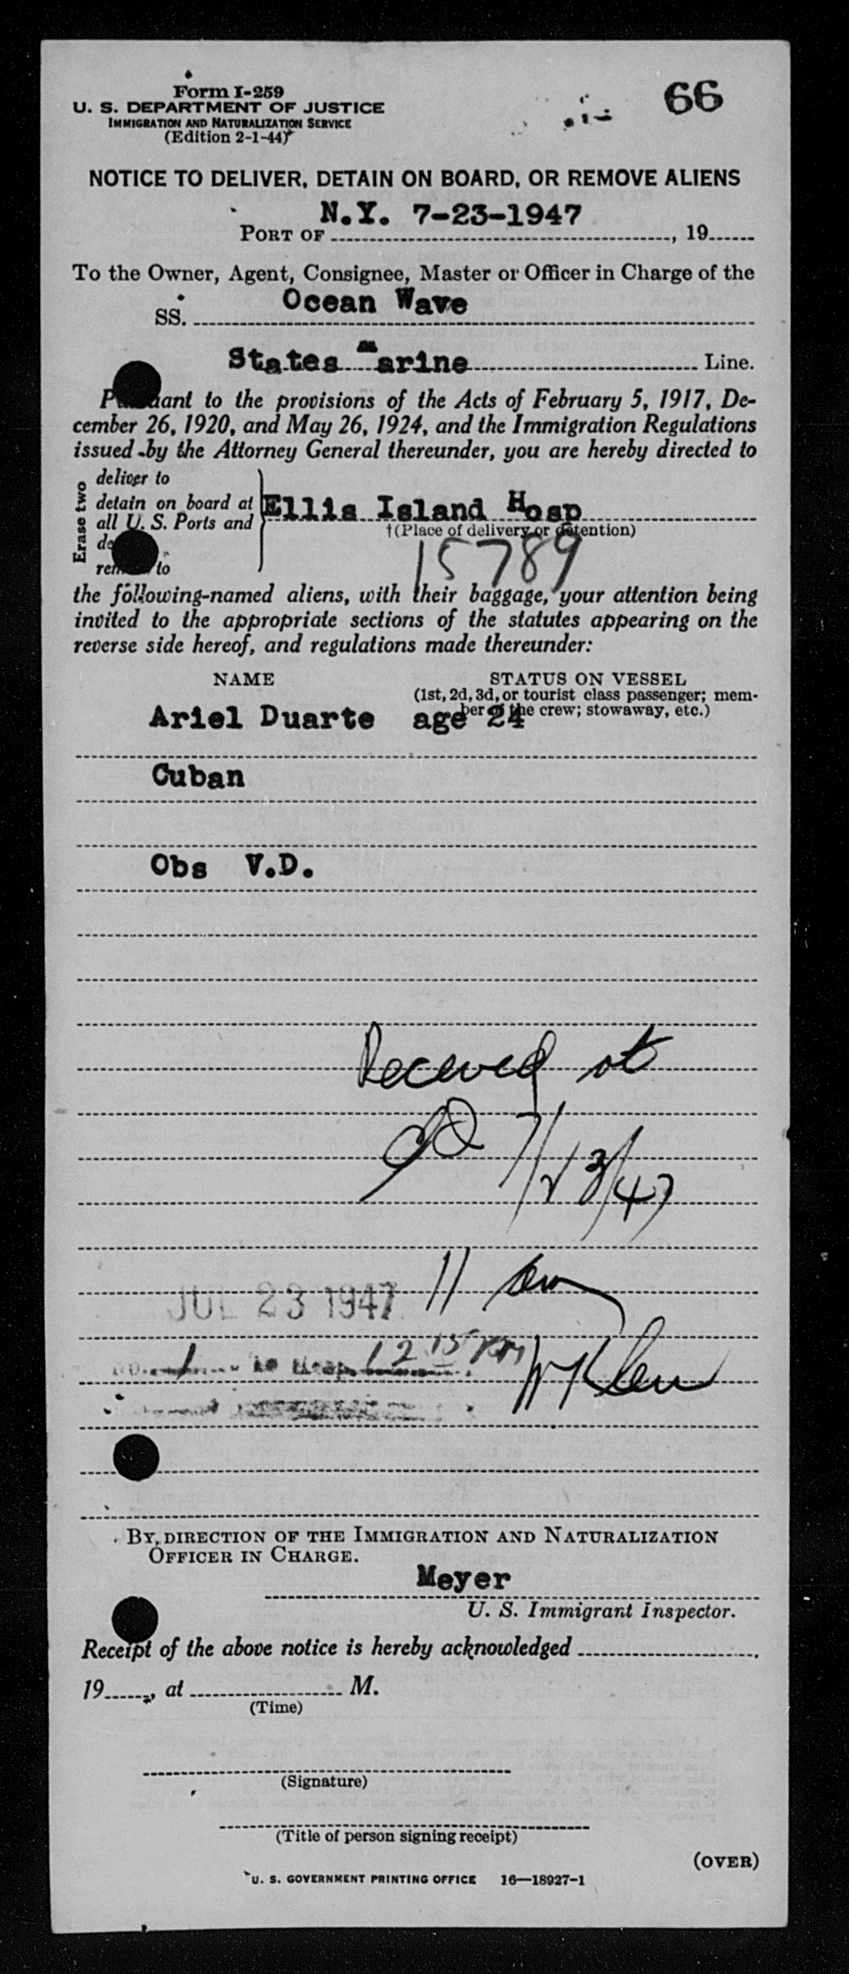 Form I-259
66
U. S. DEPARTMENT OF JUSTICE
IMMIGRATION AND NATURALIZATION SERVICE
(Edition 2-1-44)
NOTICE TO DELIVER, DETAIN ON BOARD, OR REMOVE ALIENS
N.Y. 7-23-1947
PORT OF , 19
To the Owner, Agent, Consignee, Master or Officer in Charge of the
SS. Ocean Wave
States Marine Line.
Pursuant to the provisions of the Acts of February 5, 1917, De-
cember 26, 1920, and May 26, 1924, and the Immigration Regulations
issued by the Attorney General thereunder, you are hereby directed to
Erase two
deliver to
detain on board at
all U. S. Ports and
to
Ellis Island Hosp
†(Place of delivery or detention)
15789
the following-named aliens, with their baggage, your attention being
invited to the appropriate sections of the statutes appearing on the
reverse side hereof, and regulations made thereunder:
NAME STATUS ON VESSEL
(1st, 2d, 3d, or tourist class passenger; mem-
ber of the crew; stowaway, etc.)
Ariel Duarte age 24
Cuban
Obs V.D.
Received at
7/23/47
11 am
JUL 23 1947
1 to Hosp. 12 15 PM
BY DIRECTION OF THE IMMIGRATION AND NATURALIZATION
OFFICER IN CHARGE.
Meyer
U. S. Immigrant Inspector.
Receipt of the above notice is hereby acknowledged .
19 , at M.
(Time)
(Signature)
(Title of person signing receipt)
(OVER)
U. S. GOVERNMENT PRINTING OFFICE 16—18927-1